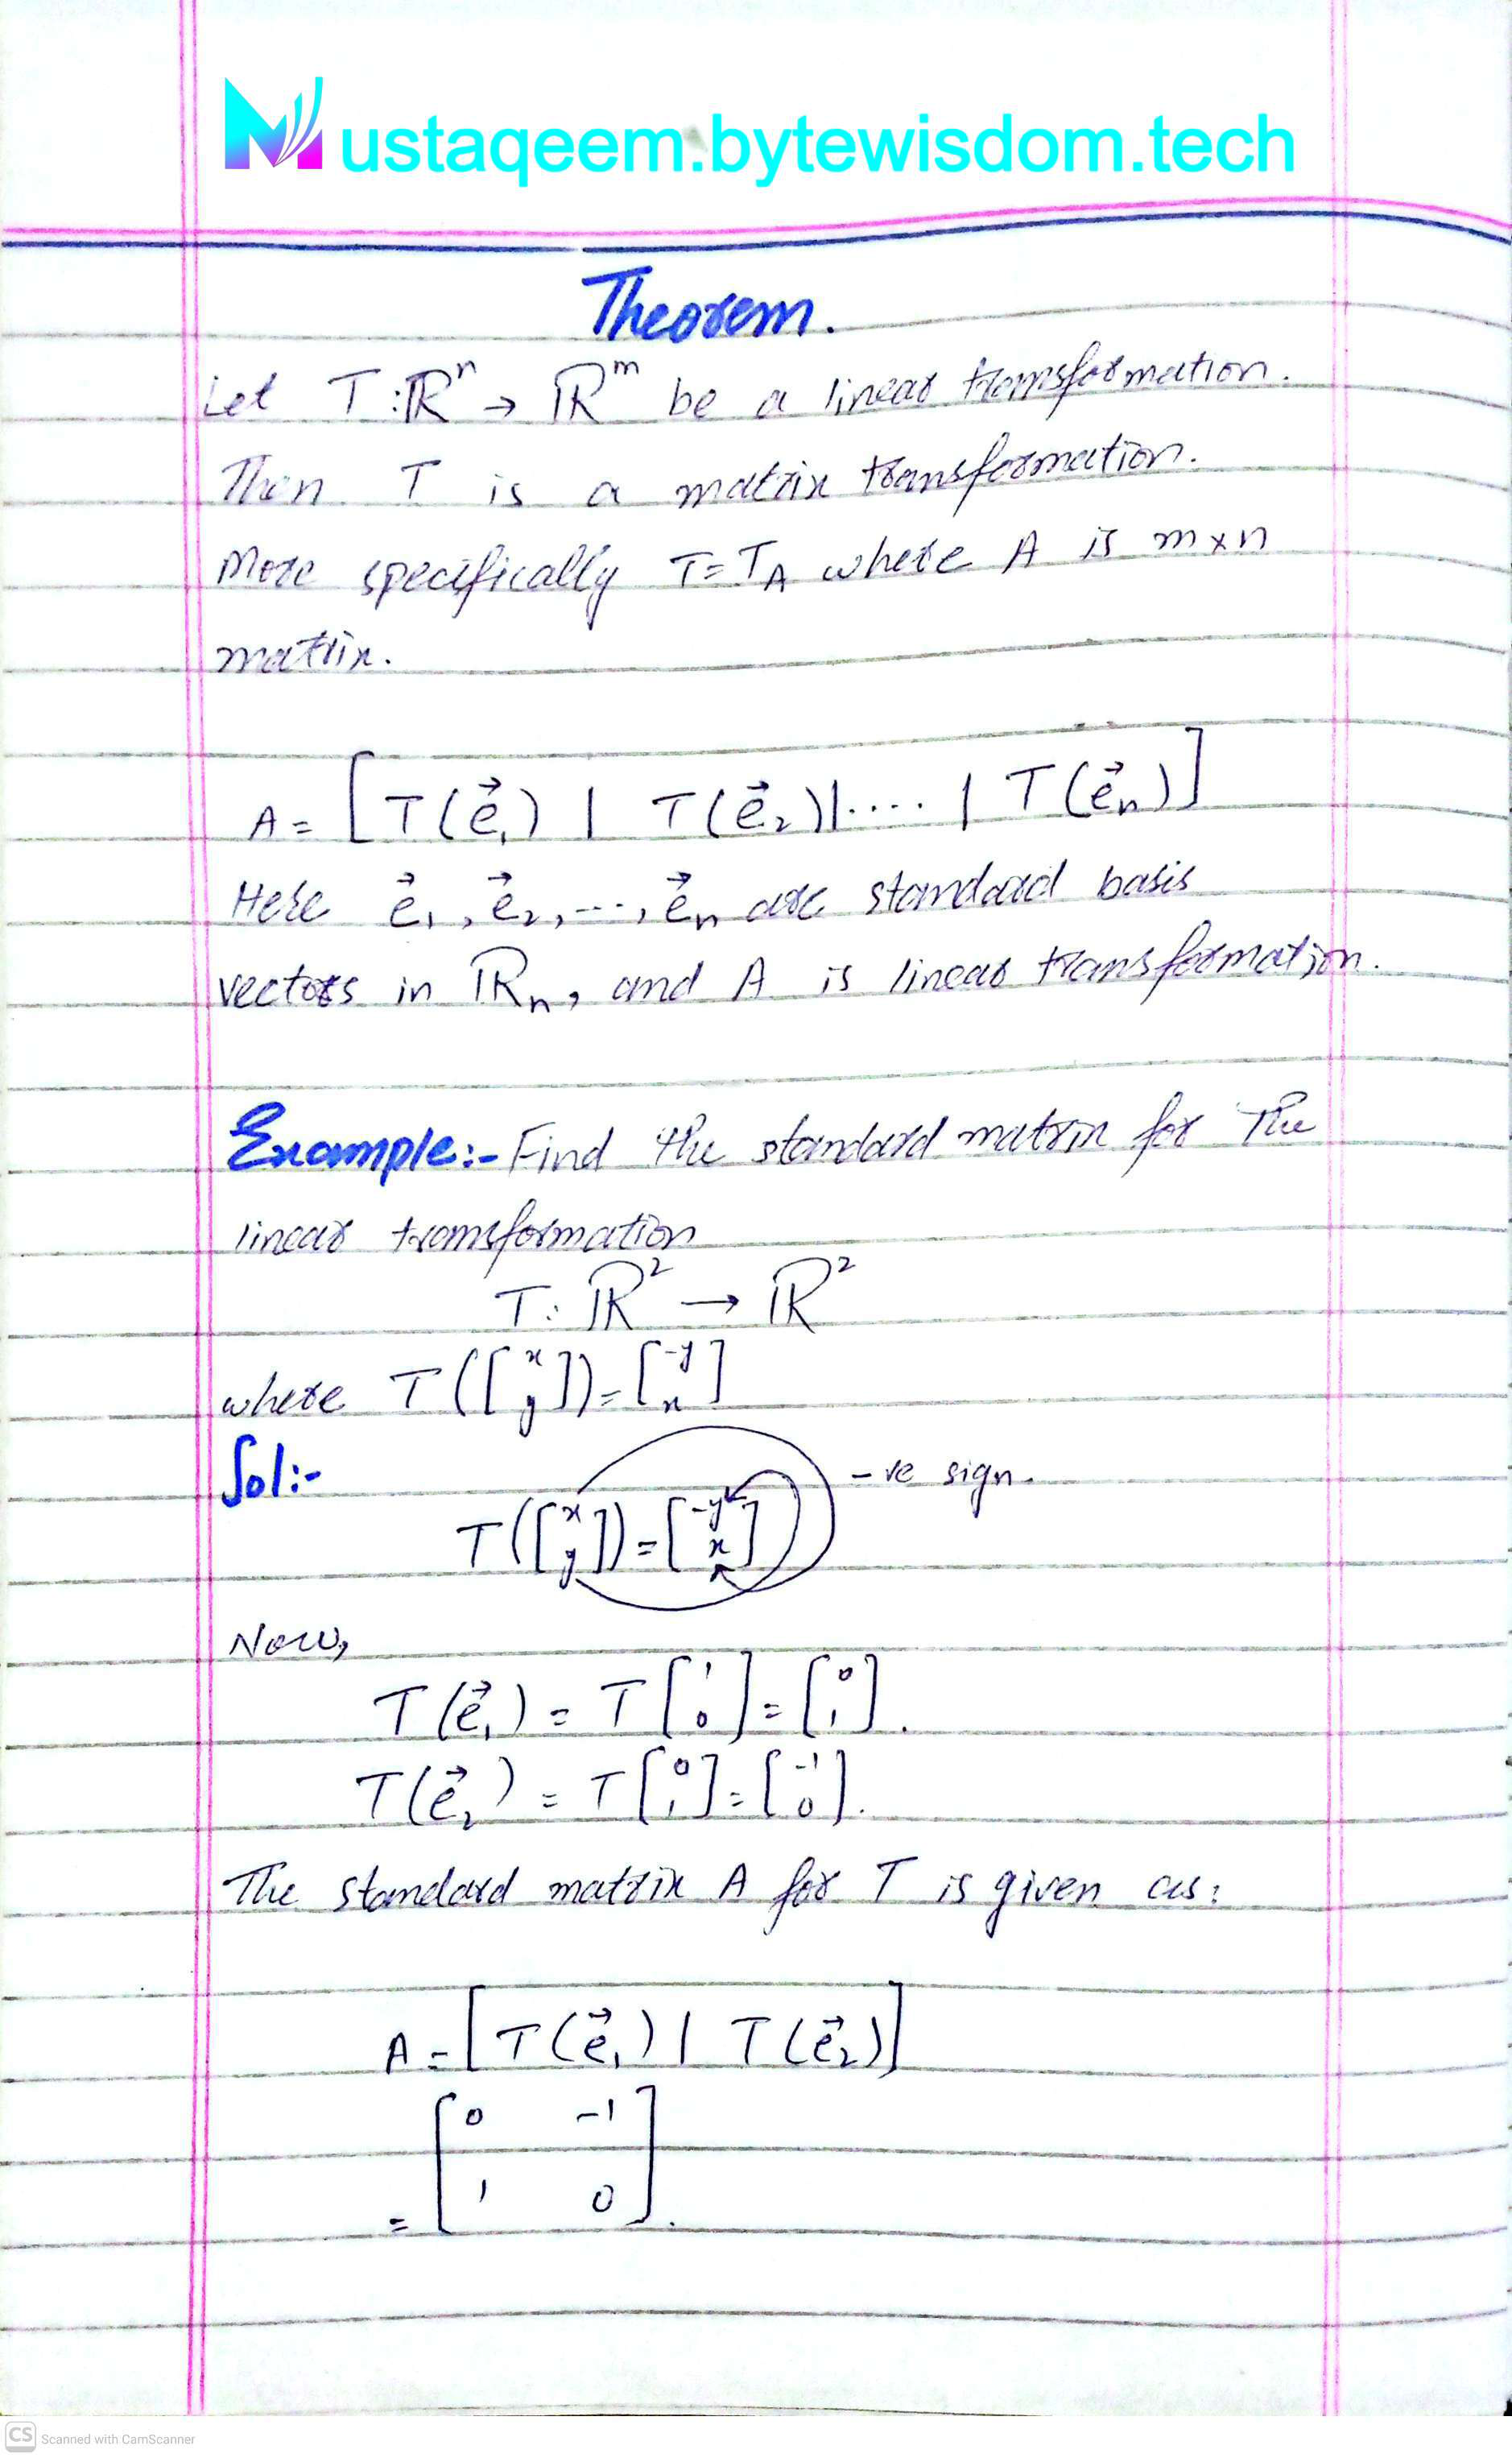 Mustaqeem.bytewisdom.tech
Theorem.
Let T:ℝⁿ → ℝᵐ be a linear transformation.
Then T is a matrix transformation.
More specifically T=T_A where A is m×n
matrix.
A = [T(e⃗₁) | T(e⃗₂)|....| T(e⃗ₙ)]
Here e⃗₁, e⃗₂, ..., e⃗ₙ are standard basis
vectors in ℝₙ, and A is linear transformation.
Example:- Find the standard matrix for The
linear transformation
T: ℝ² → ℝ²
where T([x y]) = [-y x]
Sol:-
T([x y]) = [-y x] -ve sign.
Now,
T(e⃗₁) = T[1 0] = [0 1].
T(e⃗₂) = T[0 1] = [-1 0].
The standard matrix A for T is given as:
A = [T(e⃗₁) | T(e⃗₂)]
= [0 -1
1 0].
CS Scanned with CamScanner